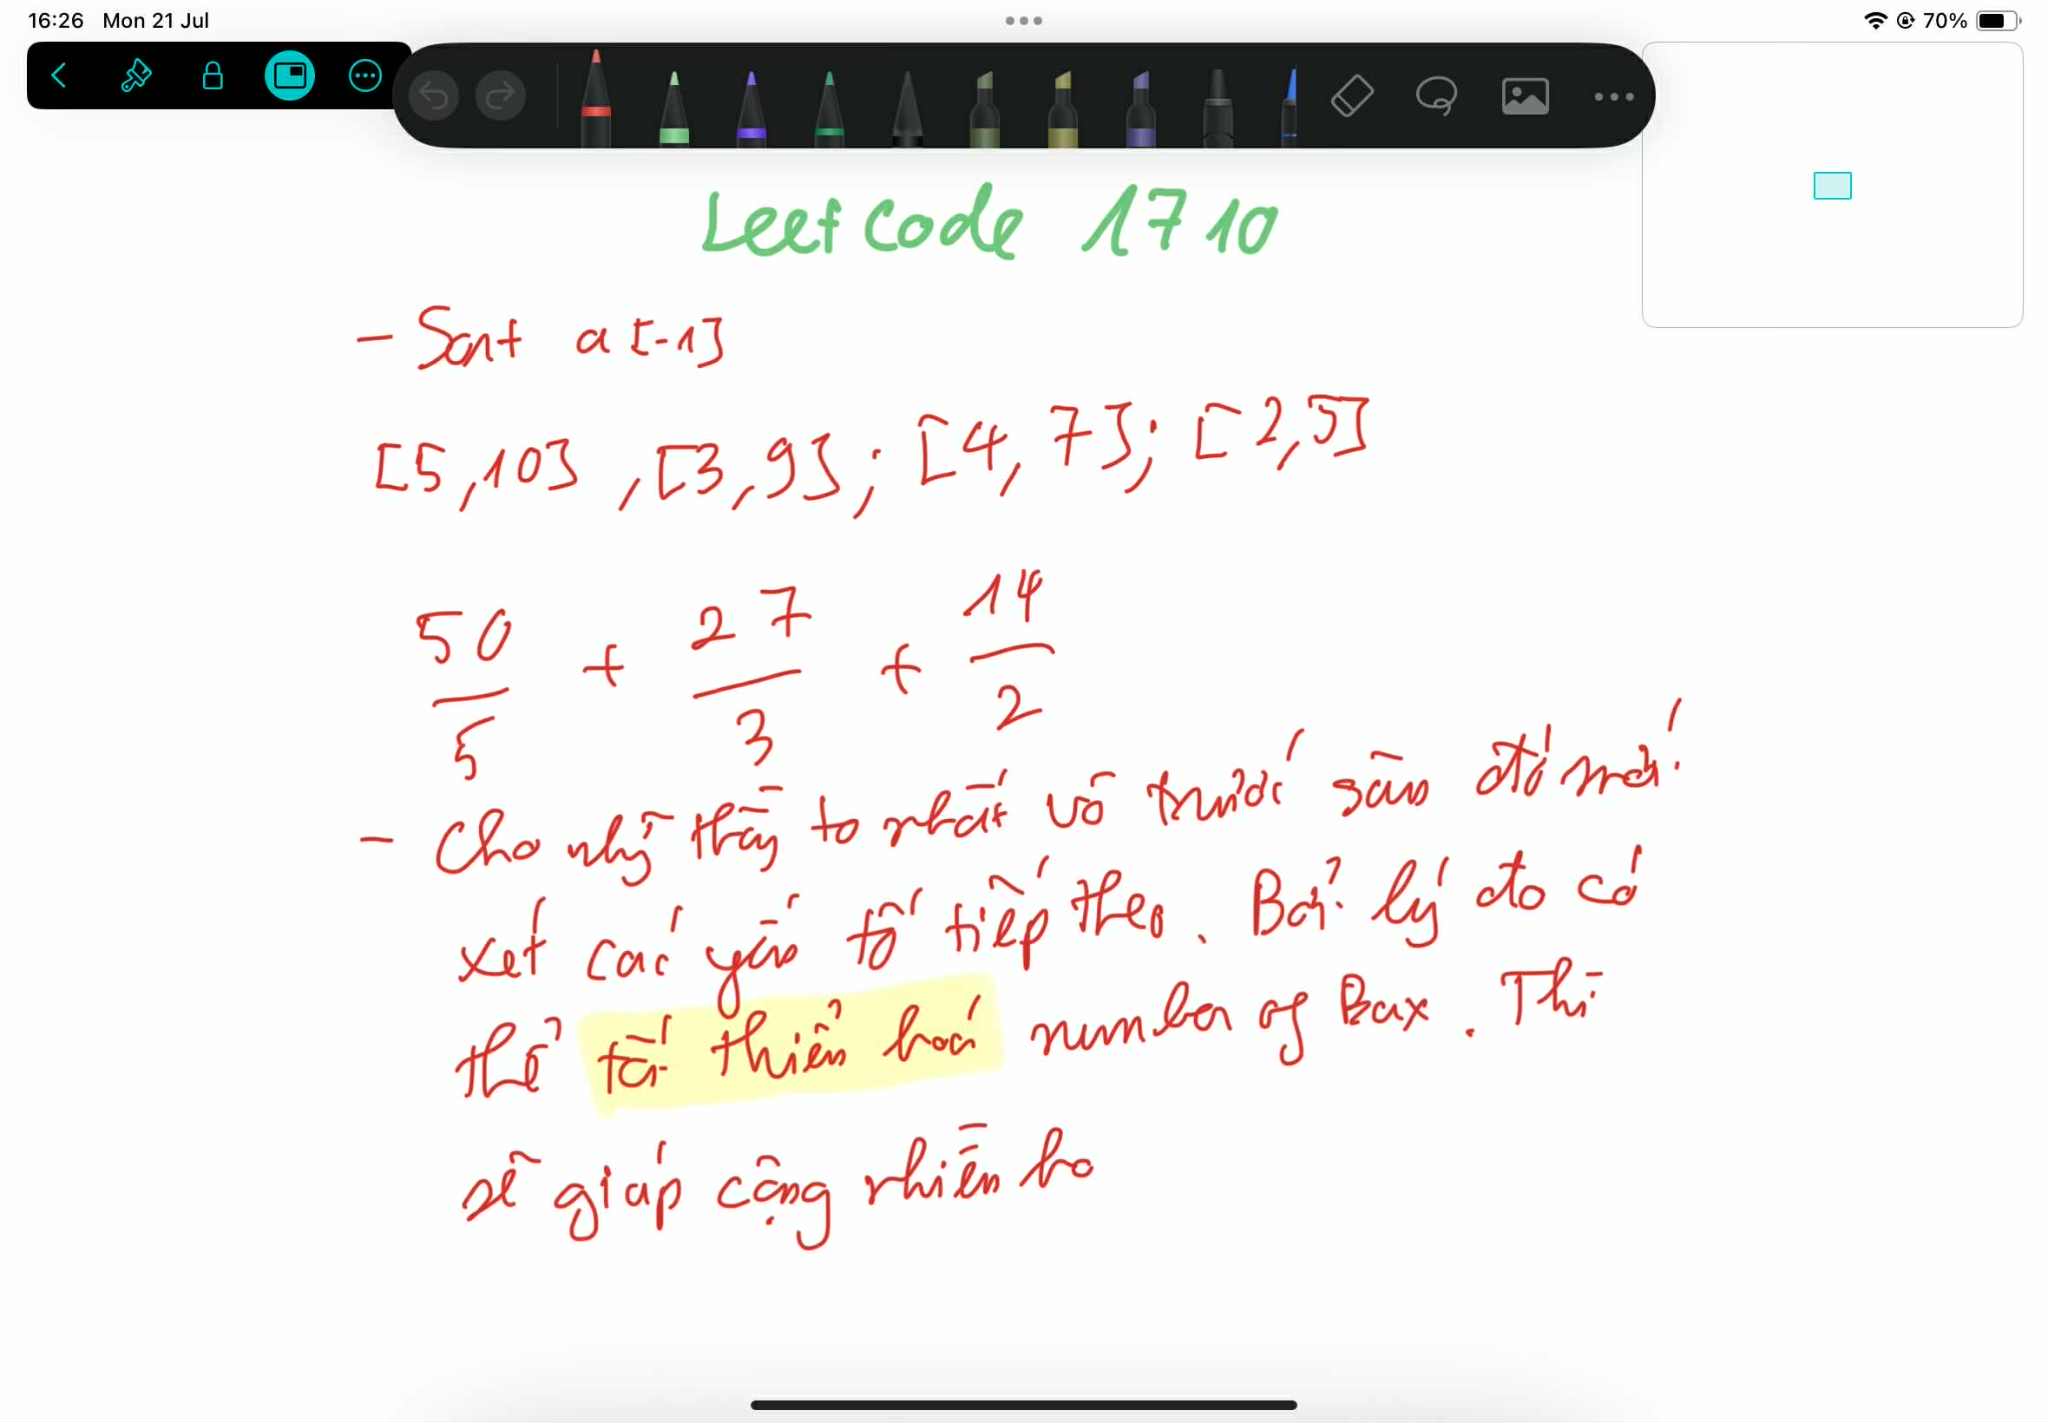 16:26 Mon 21 Jul
70%
Leetcode 1710
- Sort a[-1]
[5,10] ,[3,9]; [4,7]; [2,5]
50/5 + 27/3 + 14/2
- Cho nhữ thầy to nhất vô trước sau đó mới
xét các yếu tố tiếp theo. Bởi lý do có
thể tối thiểu hoá number of Box. Thì
sẽ giúp cộng nhiều ho